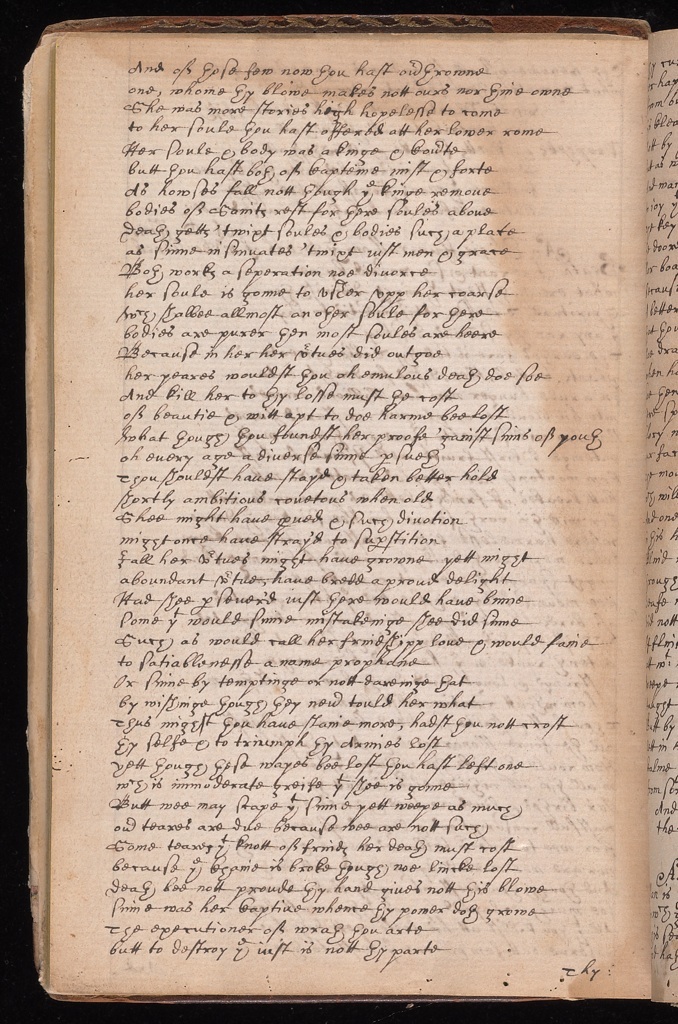 And of those few now thou hast oúthrowne
one, whome thy blowe makes nott ours nor thine owne
She was more stories high hopelesse to come
to her soule thou hast offered att her lower rome
Her soule & body was a kinge & co
butt thou hast both of captème mist & forte
As howses fall nott though yͤ kinge remove
bodies of Saints rest for there soules above
Death getts 'twixt soules & bodies such a place
as sinne insinuates 'twixt iust men & grace
Both works a seperation noe divorce
her soule is gonne to usher upp her coarse
wᶜʰ shalbee allmost another soule for there
bodies are purer then most soules are heere
Because in her her vtues did outgoe
her yeares wouldst thou oh emulous death doe soe
And kill her to thy losse must the cost
of beautie & witt apt to doe harme bee lost
What though thou foundst her proofe 'gainst sinns of youth
oh every age a diverse sinne psueth
Thou shouldst have stayd & taken better hold
shortly ambitious covetous when old
Shee might have pued & such divotion
might once have strayd to supstition
If all her vtues might have growne yett might
aboundant vtue, have bredd a proud delight
Had shee psever'd iust there would have binne
some yͭ would sinne mistakeinge shee did sinne
Such as would call her friendshipp love & would faine
to sotiablenesse a name prophane
Or sinne by temptinge or nott dareinge that
by wishinge though they nevʳ tould her what
Thus mightst thou have slaine more, hadst thou nott crost
thy selfe & to triumph thy Armies lost
yett though these wayes bee lost thou hast left one
wᶜʰ is immoderate greife yͭ shee is gonne
Butt wee may scape yͭ sinne yett weepe as much
our teares are due because wee are nott such
Some teares yͭ knott of frinds her death must cost
because yͤ chaine is broke though noe lincke lost
Death bee nott proude thy hand gives nott this blowe
sinne was her captive whence thy power doth growe
The executioner of wrath thou arte
butt to destroy yͤ iust is nott thy parte
Thy: